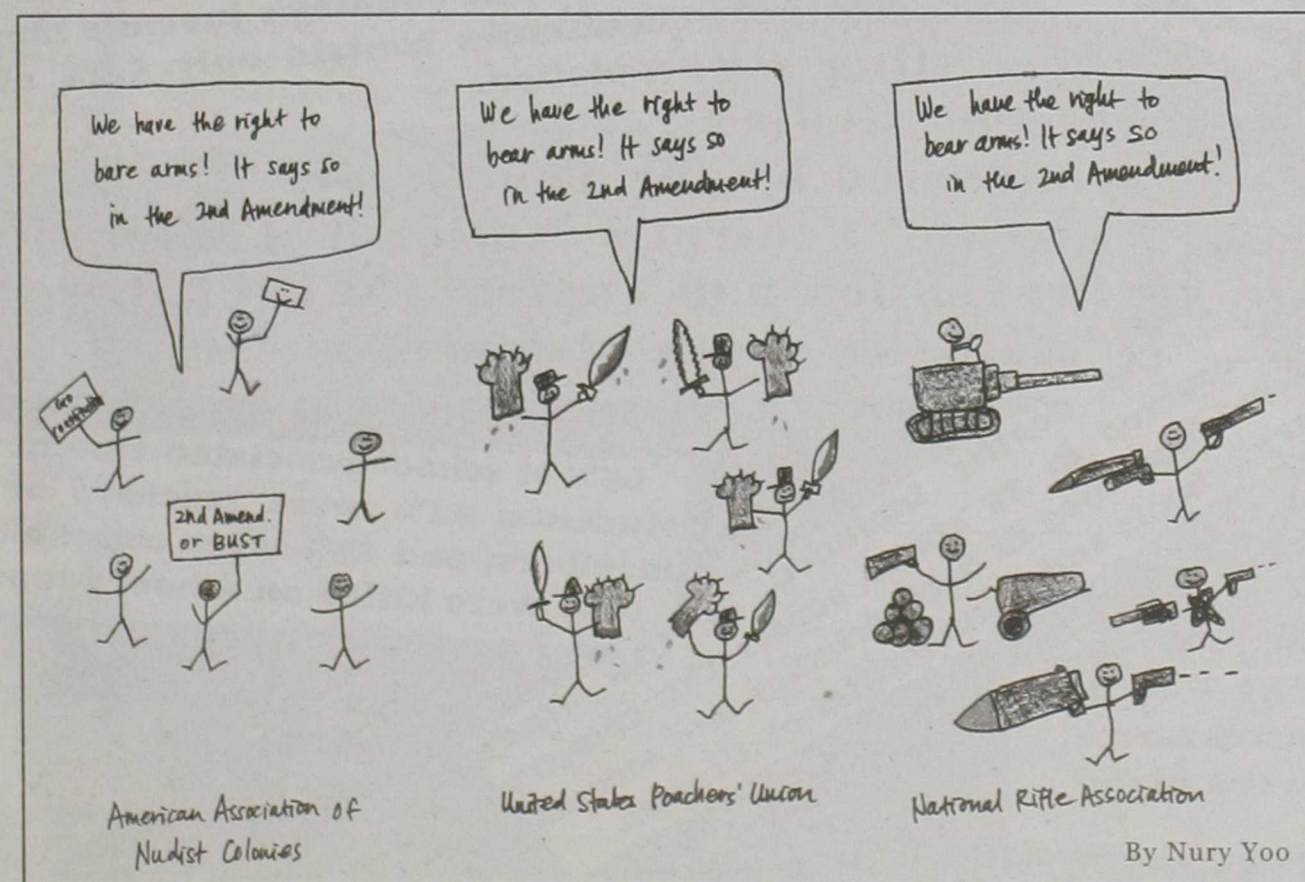 We have the right to
bare arms! It says so
in the 2nd Amendment!
We have the right to
bear arms! It says so
in the 2nd Amendment!
We have the right to
bear arms! It says so
in the 2nd Amendment!
Go
2nd Amend.
or BUST
American Association of
Nudist Colonies
United States Poachers' Union
National Rifle Association
By Nury Yoo